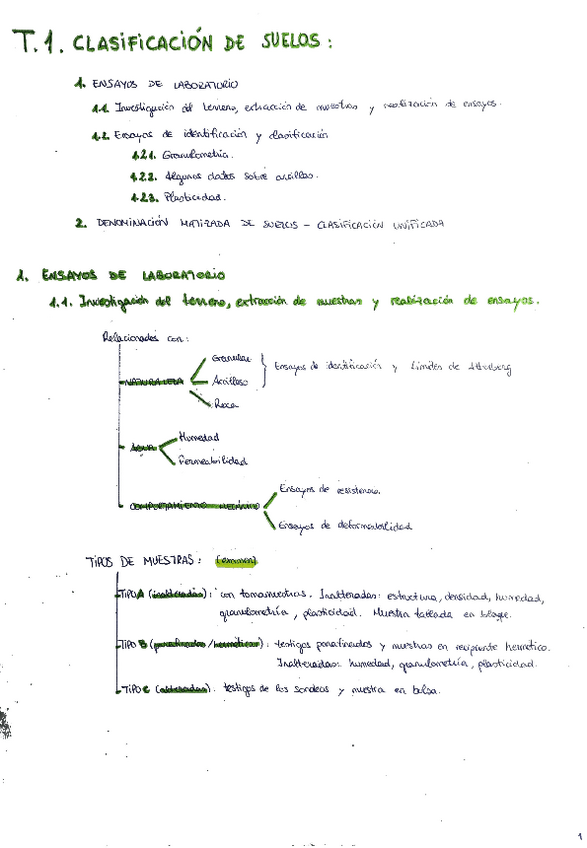 T.1. CLASIFICACIÓN DE SUELOS:
1. ENSAYOS DE LABORATORIO
1.1. Investigación del terreno, extracción de muestras y realización de ensayos.
1.2. Ensayos de identificación y clasificación
1.2.1. Granulometría.
1.2.2. Algunos datos sobre arcillas.
1.2.3. Plasticidad.
2. DENOMINACIÓN MATIZADA DE SUELOS - CLASIFICACIÓN UNIFICADA
1. ENSAYOS DE LABORATORIO
1.1. Investigación del terreno, extracción de muestras y realización de ensayos.
Relacionados con:
NATURALEZA
Granular
Arcilloso
Roca
Ensayos de identificación y Límites de Atterberg
AGUA
Humedad
Permeabilidad
COMPORTAMIENTO MECÁNICO
Ensayos de resistencia.
Ensayos de deformabilidad
TIPOS DE MUESTRAS: (examen)
TIPO A (inalteradas): con tomamuestras. Inalteradas: estructura, densidad, humedad,
granulometría, plasticidad. Muestra tallada en bloque.
TIPO B (parafinados/herméticos): testigos parafinados y muestras en recipiente hermético.
Inalteradas: humedad, granulometría, plasticidad.
TIPO C (alteradas). testigos de los sondeos y muestra en bolsa.
1